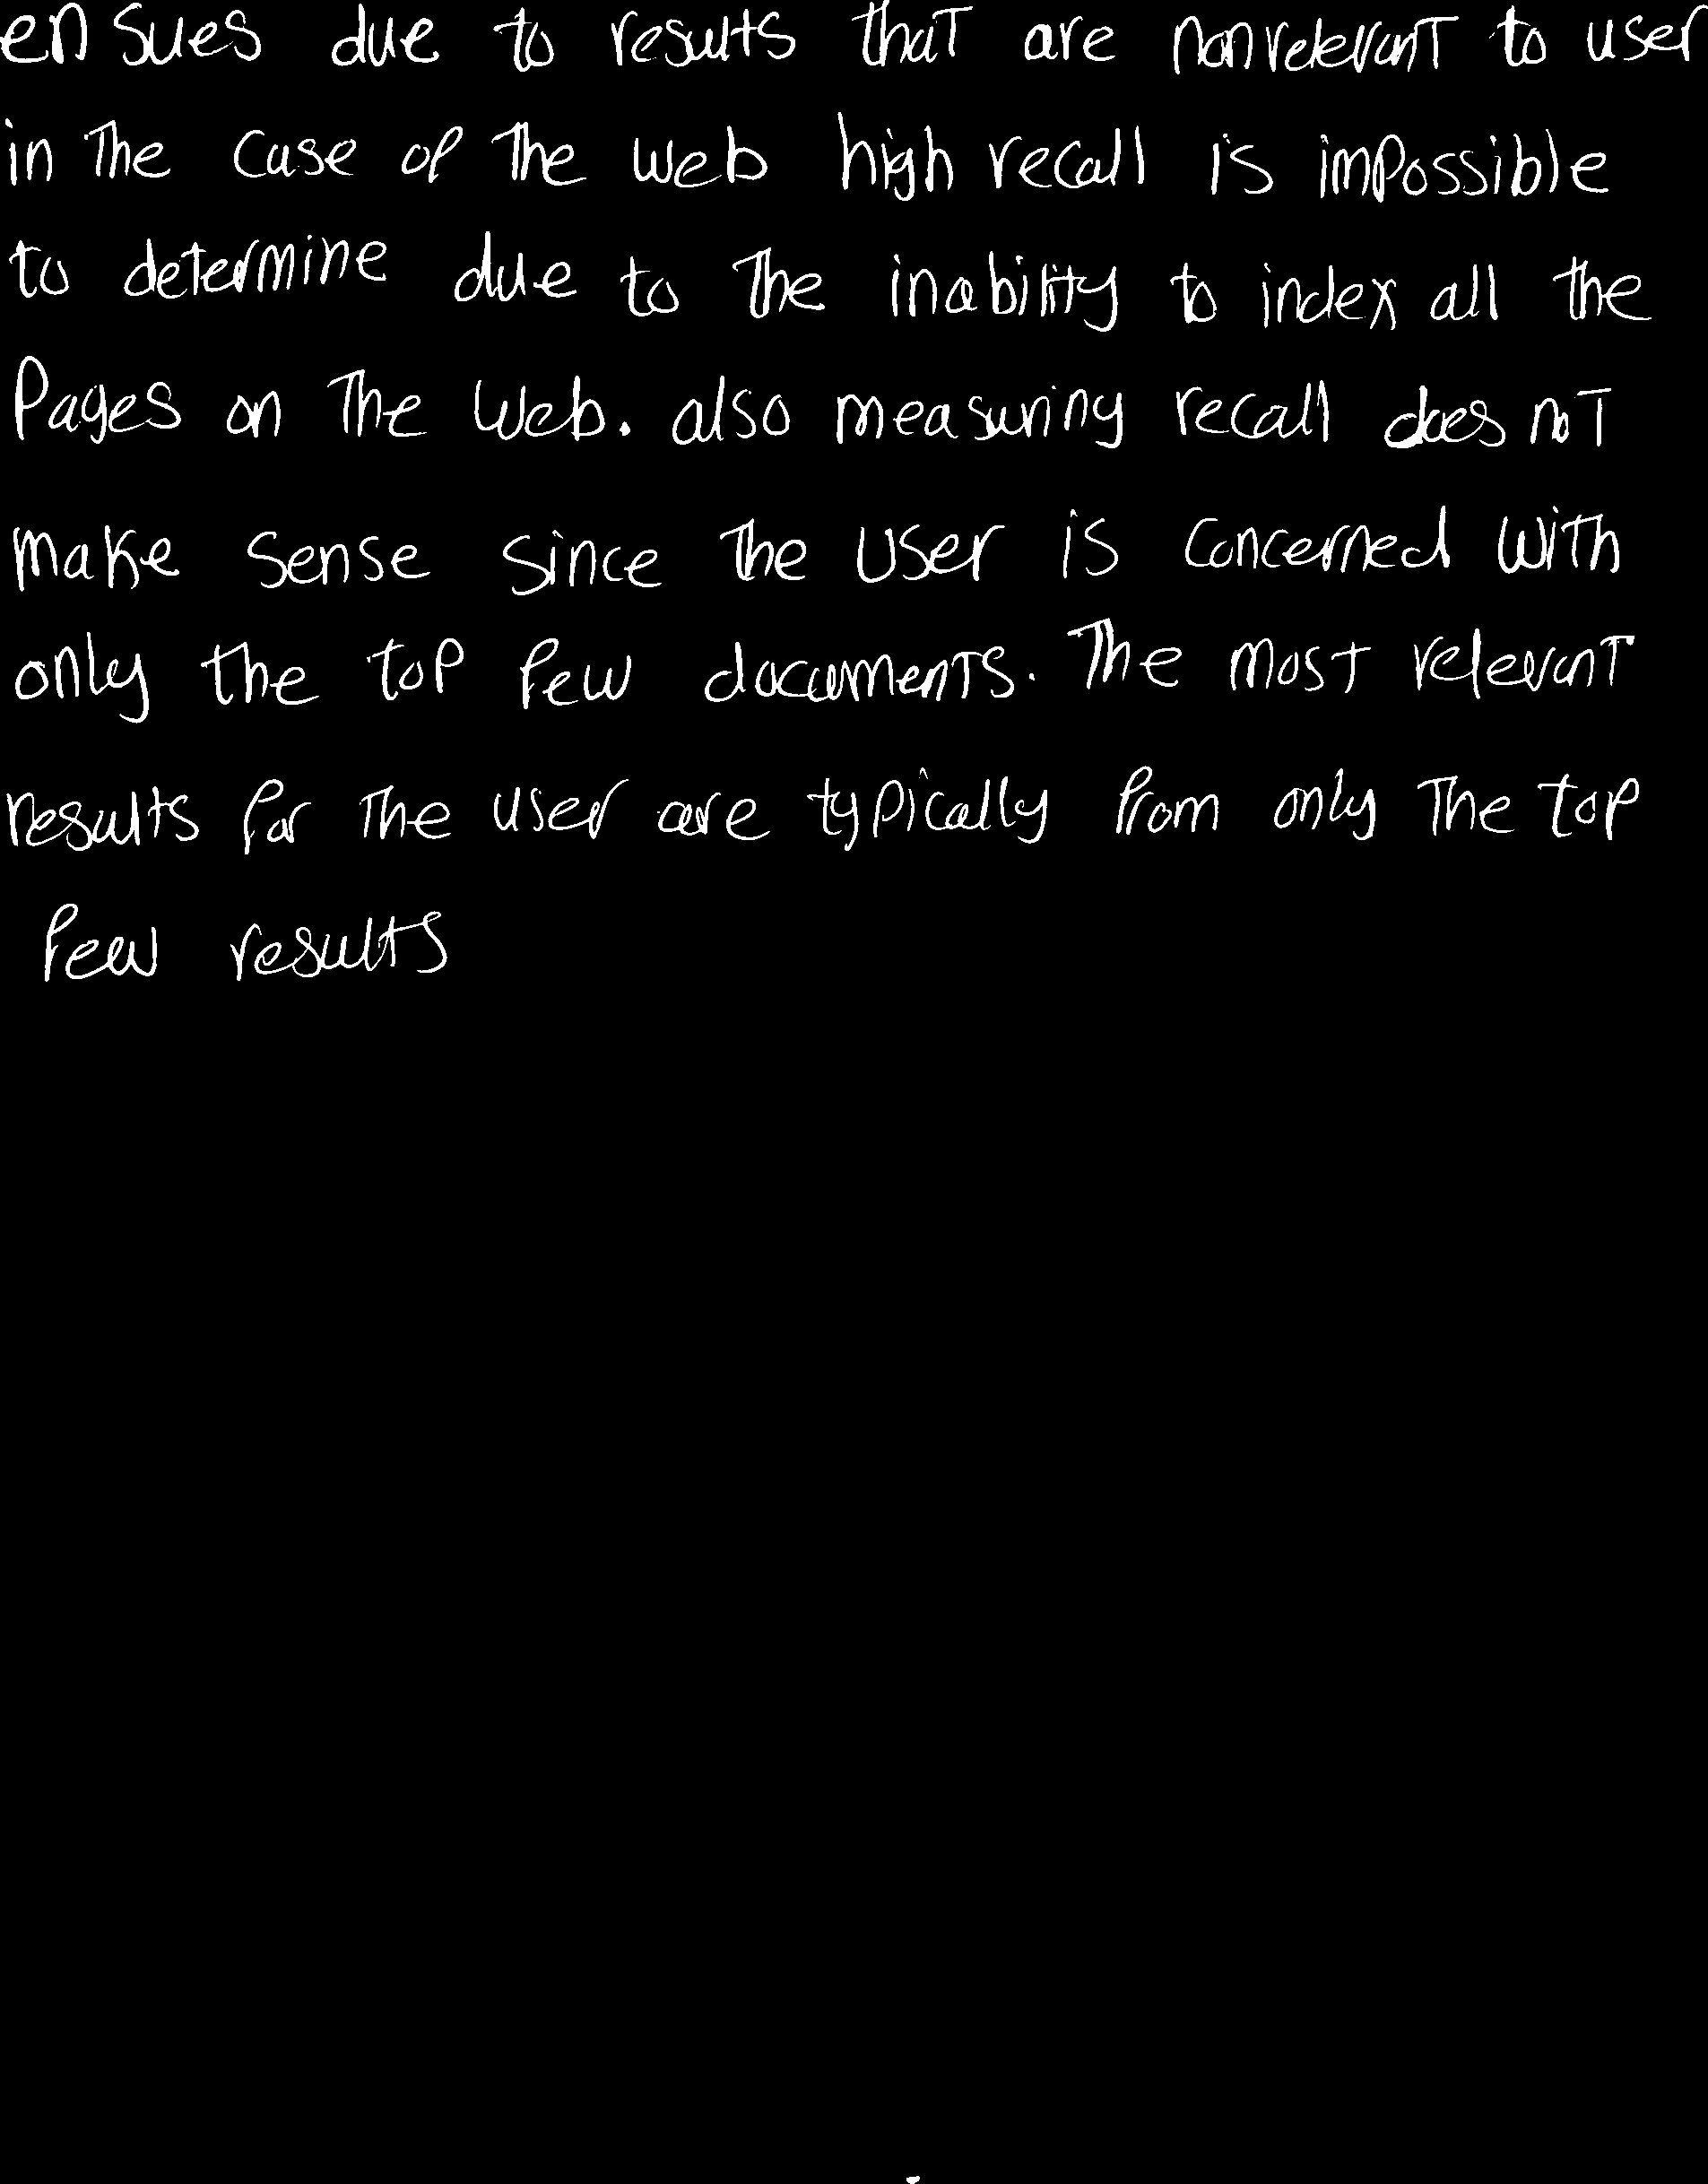 ensues due to results that are nonrelevant to user
in the case of the web high recall is impossible
to determine due to the inability to index all the
Pages on the web. also measuring recall does not
make sense since the user is concerned with
only the top few documents. The most relevant
results for the user are typically from only the top
few results